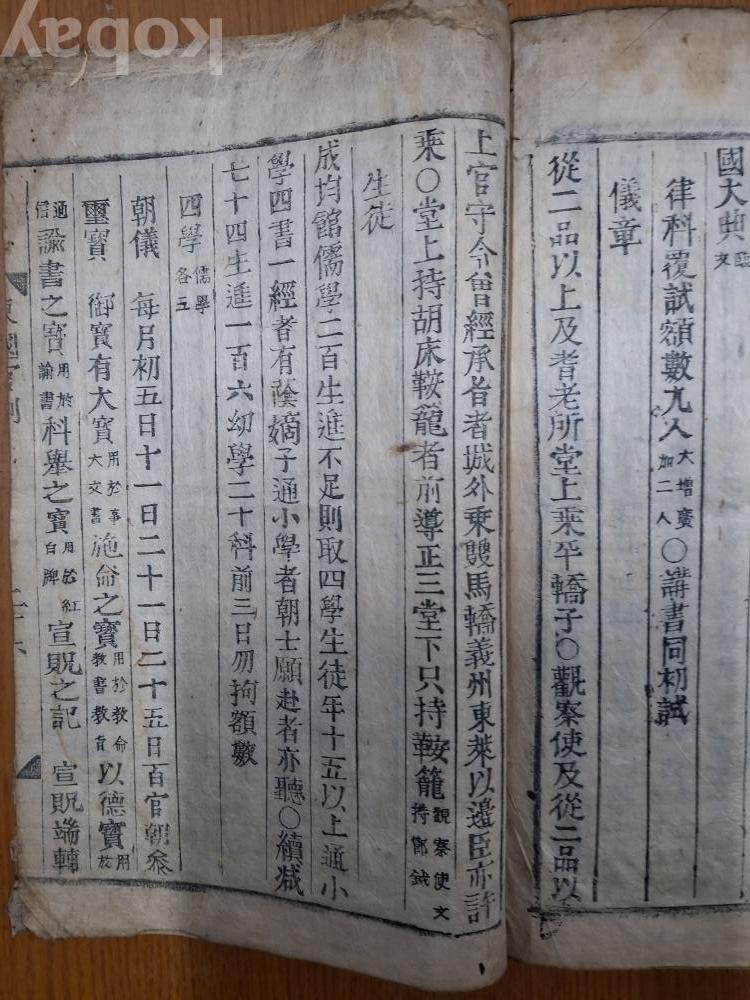 國大典
律科覆試額數九人大增廣加二人〇講書同初試
儀章
從二品以上及耆老所堂上乘平轎子〇觀察使及從二品以
上官守令曾經承旨者城外乘雙馬轎義州東萊以邊臣亦許
乘〇堂上持胡床鞍籠者前導正三堂下只持鞍籠觀察使文持
生徒
成均館儒學二百生進不足則取四學生徒年十五以上通小
學四書一經者有蔭嫡子通小學者朝士願赴者亦聽〇續減
七十四生進一百六幼學二十科前三日勿拘額數
四學儒學各五
朝儀 每月初五日十一日二十一日二十五日百官朝參
璽寶 御寶有大寶用於事大文書施命之寶用於教命教書教旨以德寶用於
通信諭書之寶用於諭書科舉之寶用於紅白牌宣貺之記 宣貺端輔
kobay